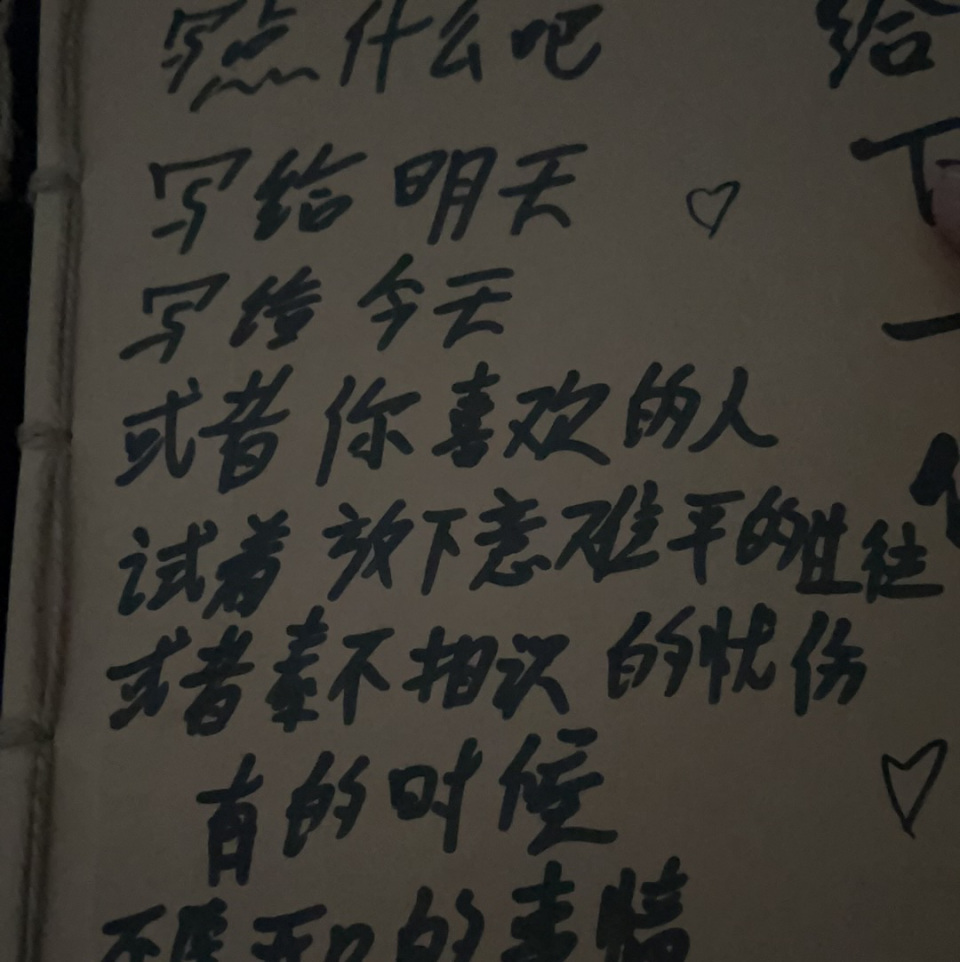 写点什么吧
写给明天
写给今天
或者你喜欢的人
试着放下意难平的过往
或者素不相识的忧伤
有的时候
的事情
给